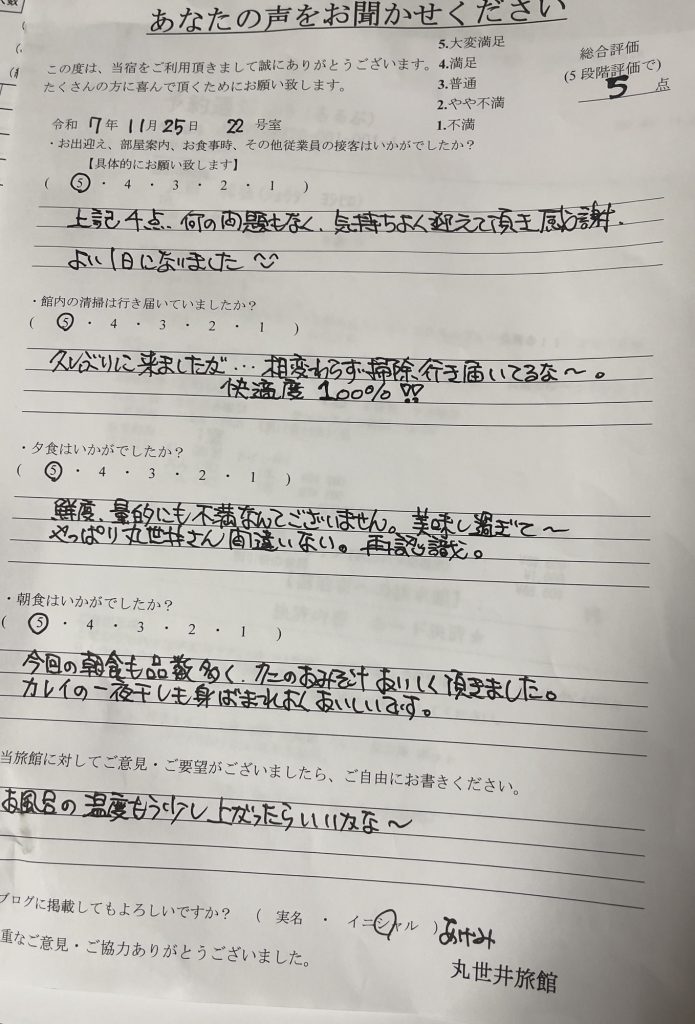 あなたの声をお聞かせください
この度は、当宿をご利用頂きまして誠にありがとうございます。
たくさんの方に喜んで頂くためにお願い致します。
5.大変満足
4.満足
3.普通
2.やや不満
1.不満
総合評価
(5段階評価で)
5 点
令和 7年 11月25日 22 号室
・お出迎え、部屋案内、お食事時、その他従業員の接客はいかがでしたか?
【具体的にお願い致します】
( 5 ・ 4 ・ 3 ・ 2 ・ 1 )
上記4点、何の問題もなく、気持ちよく迎えて頂き感謝.
よい1日になりました
・館内の清掃は行き届いていましたか?
( 5 ・ 4 ・ 3 ・ 2 ・ 1 )
久しぶりに来ましたが…相変わらず掃除、行き届いてるな〜。
快適度 100%!!
・夕食はいかがでしたか?
( 5 ・ 4 ・ 3 ・ 2 ・ 1 )
鮮度、量的にも不満なんてございません。美味し過ぎて〜
やっぱり丸世井さん間違いない。再認識。
・朝食はいかがでしたか?
( 5 ・ 4 ・ 3 ・ 2 ・ 1 )
今回の朝食も品数多く、カニのおみそ汁おいしく頂きました。
カレイの一夜干しも身ばなれよくおいしいです。
当旅館に対してご意見・ご要望がございましたら、ご自由にお書きください。
お風呂の温度もう少し上がったらいいかな〜
ブログに掲載してもよろしいですか? ( 実名 ・ イニシャル ) あけみ
重なご意見・ご協力ありがとうございました。
丸世井旅館